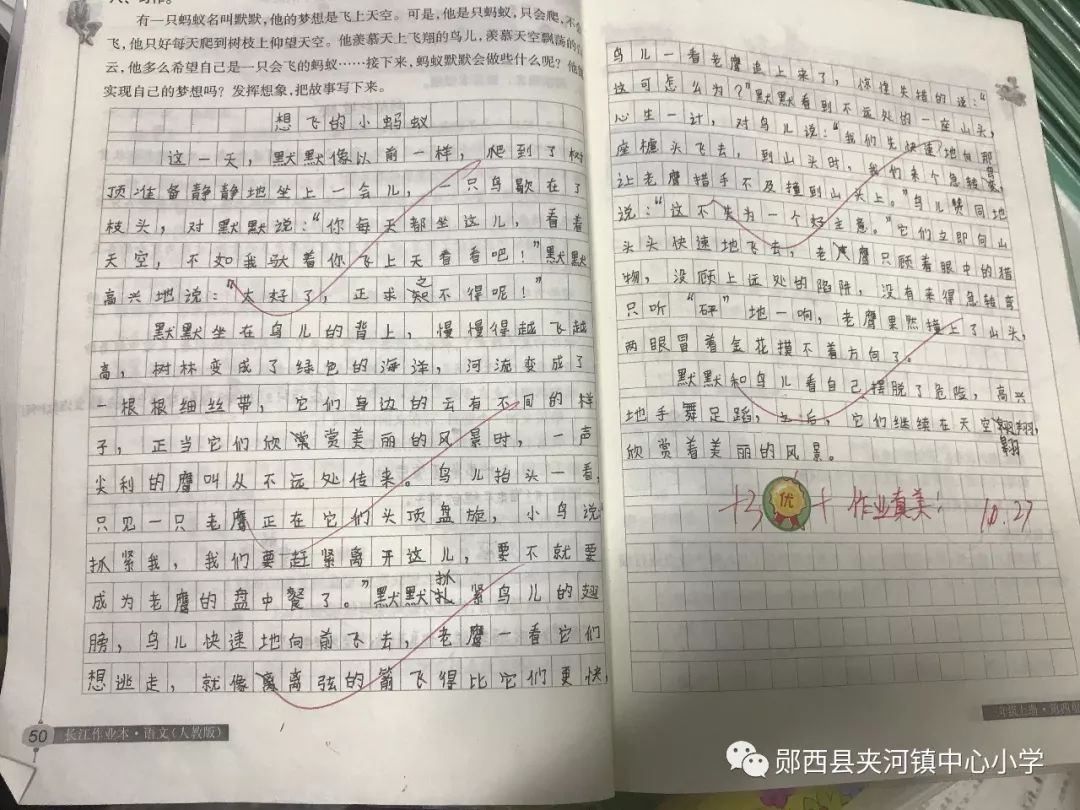 八、写作。
有一只蚂蚁名叫默默,他的梦想是飞上天空。可是,他是只蚂蚁,只会爬,不会
飞,他只好每天爬到树枝上仰望天空。他羡慕天上飞翔的鸟儿,羡慕天空飘荡的白
云,他多么希望自己是一只会飞的蚂蚁……接下来,蚂蚁默默会做些什么呢?他能
实现自己的梦想吗?发挥想象,把故事写下来。
想飞的小蚂蚁
这一天,默默像以前一样,爬到了树
顶准备静静地坐上一会儿,一只鸟歇在了
枝头,对默默说:“你每天都坐这儿,看着
天空,不如我驮着你飞上天看看吧!”默默
高兴地说:“太好了,正求之不得呢!”
默默坐在鸟儿的背上,慢慢得越飞越
高,树林变成了绿色的海洋,河流变成了
一根根细丝带,它们身边的云有不同的样
子,正当它们欣赏美丽的风景时,一声
尖利的鹰叫从不远处传来。鸟儿抬头一看,
只见一只老鹰正在它们头顶盘旋,小鸟说:
抓紧我,我们要赶紧离开这儿,要不就要
成为老鹰的盘中餐了。”默默抓紧鸟儿的翅
膀,鸟儿快速地向前飞去,老鹰一看它们
想逃走,就像离离弦的箭飞得比它们更快,
鸟儿一看老鹰追上来了,惊慌失措的说:“
这可怎么为?”默默看到不远处的一座山头,
心生一计,对鸟儿说:“我们先快速地向那
座山头飞去,到山头时,我们来个急转弯,
让老鹰措手不及撞到山头上。”鸟儿赞同地
说:“这不失为一个好主意。”它们立即向山
头头快速地飞去,老鹰只顾着眼中的猎
物,没顾上远处的陷阱,没有来得急转弯
只听“砰”地一响,老鹰果然撞上了山头,
两眼冒着金花摸不着方向了。
默默和鸟儿看自己摆脱了危险,高兴
地手舞足蹈,之后,它们继续在天空翱翔,
欣赏着美丽的风景。
+3 优 + 作业真美! 10.27
50 长江作业本·语文(人教版)
年级上册·第四单
郧西县夹河镇中心小学